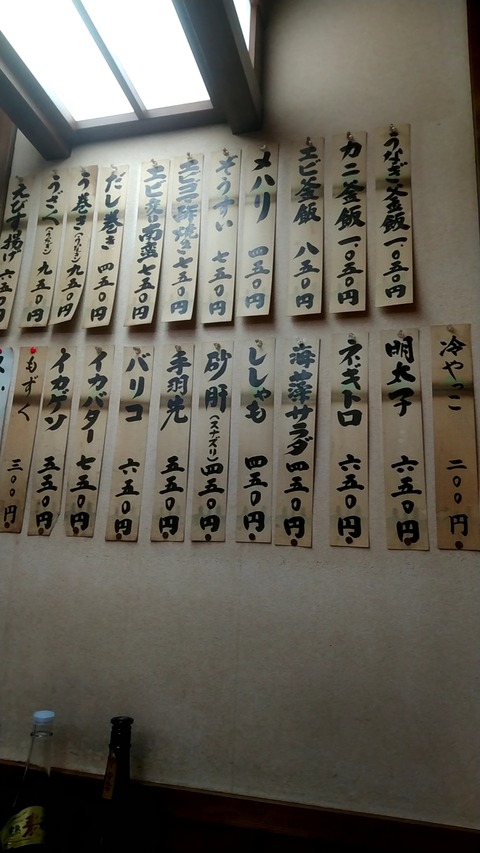 うなぎ釜飯 一、〇五〇円
カニ釜飯 一、〇五〇円
エビ釜飯 八五〇円
メハリ 四五〇円
ぞうすい 七五〇円
七五〇円
七五〇円
だし巻き 四五〇円
う巻き(うなぎ) 九五〇円
うざく(うなぎ) 九五〇円
えびす揚げ 六五〇円
冷やっこ 二〇〇円
明太子 六五〇円
ネギトロ 六五〇円
海藻サラダ 四五〇円
ししゃも 四五〇円
砂肝(スナズリ) 四五〇円
手羽先 五五〇円
バリコ 六五〇円
イカバター 七五〇円
イカゲソ 五五〇円
もずく 三〇〇円